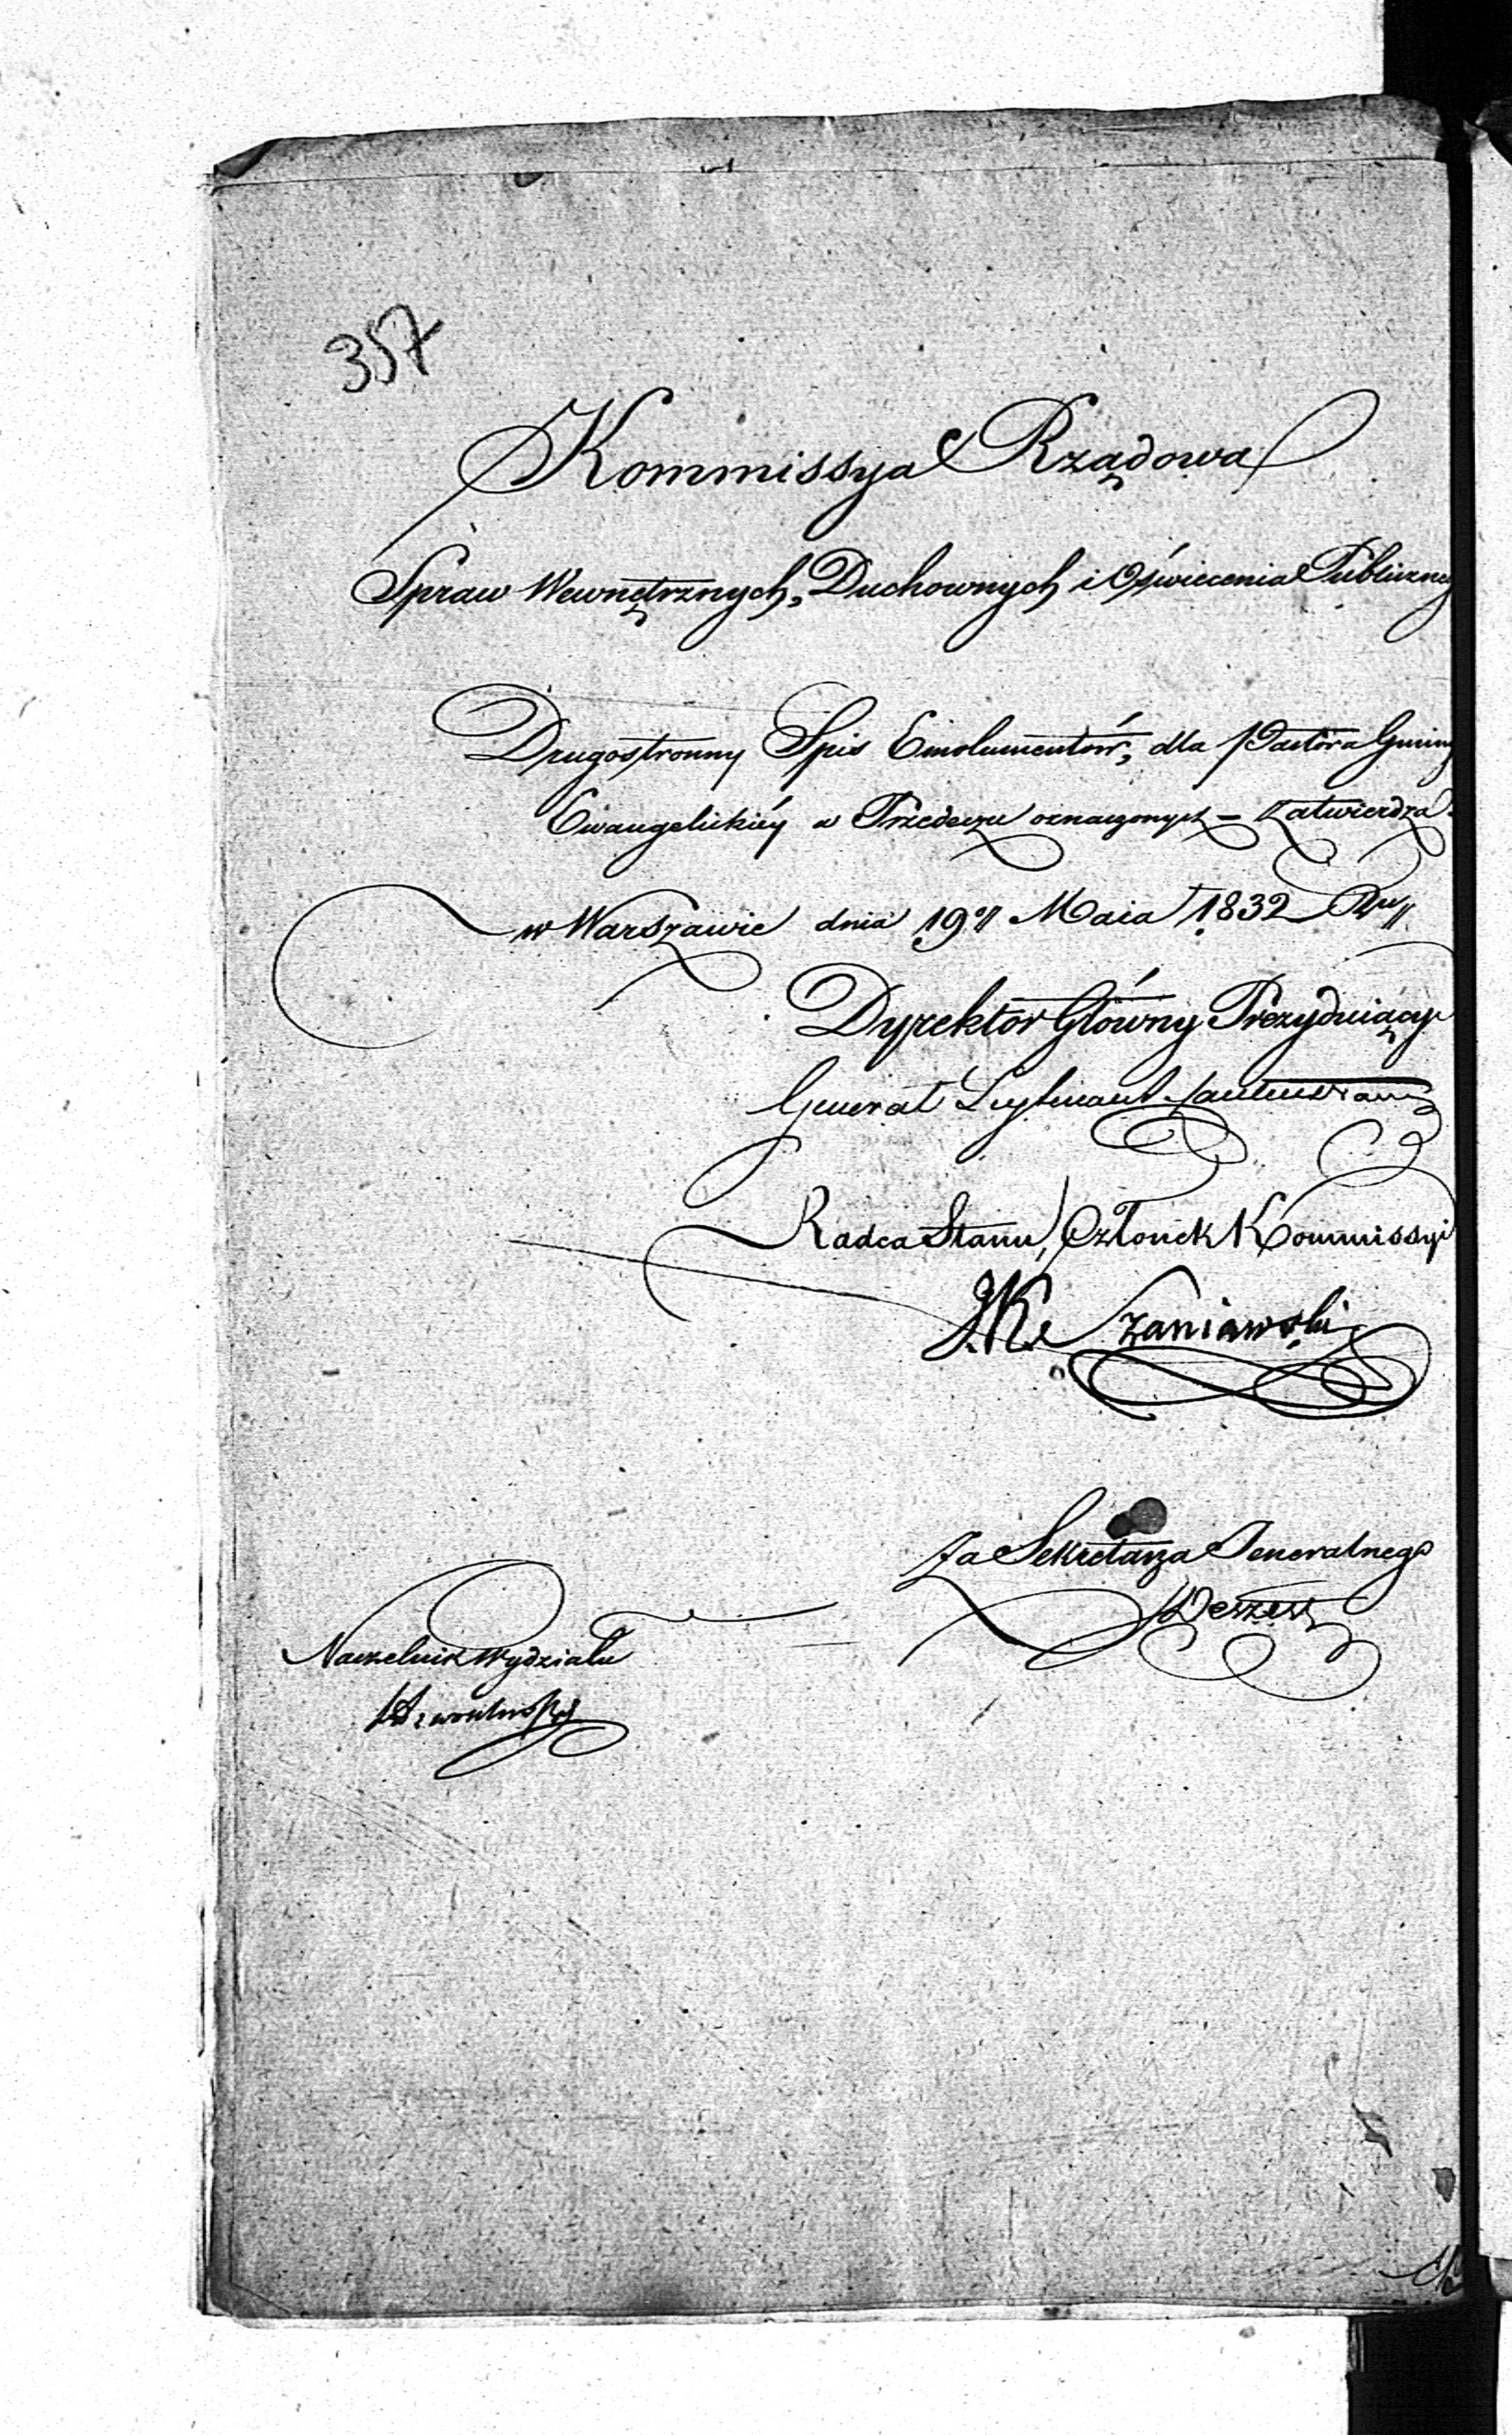 357
Kommissya Rządowa
Spraw Wewnętrznych, Duchownych i Oświecenia Publiczney
Drugostronny Spis Emolumentów, dla Pastora Gminy
Ewangelickiéy w Przedeczu oznaczonych – zatwierdza.
w Warszawie dnia 19º Maia 1832 Rу
Dyrektor Główny Prezyduiący
Generał Leytnant
Radca Stanu, Członek Kommissyi
J.K. Szaniawski
Za Sekretarza Jeneralnego
Naczelnik Wydziału